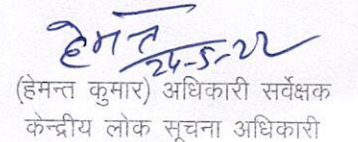 हेमन्त
24-5-22
(हेमन्त कुमार) अधिकारी सर्वेक्षक
केन्द्रीय लोक सूचना अधिकारी